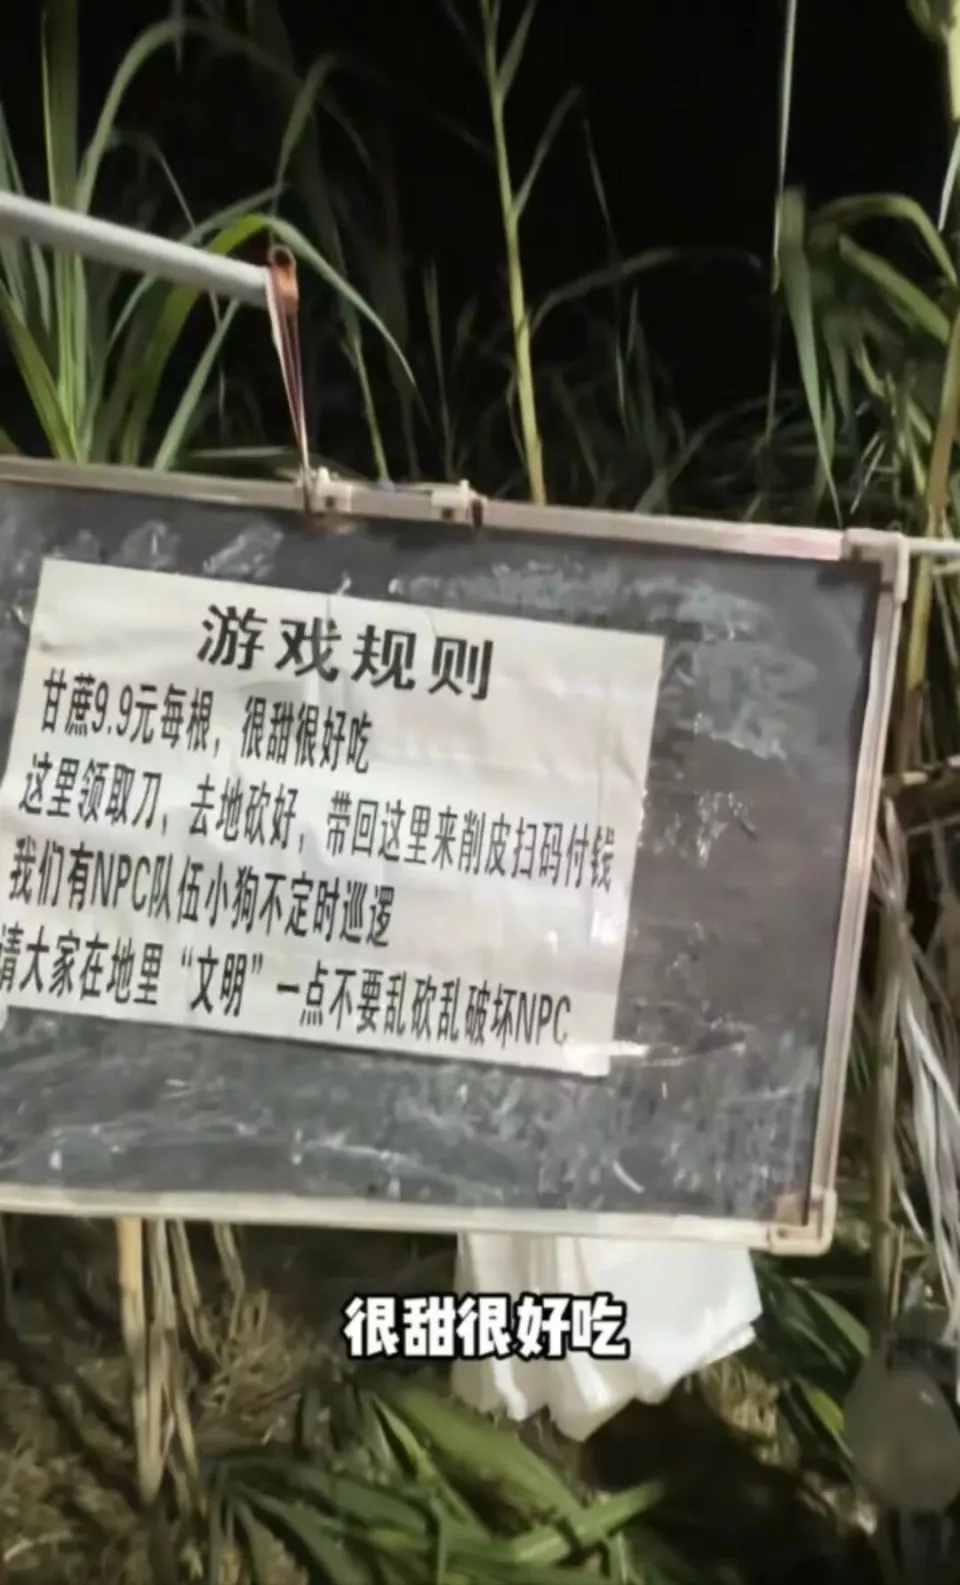 游戏规则
甘蔗9.9元每根，很甜很好吃
这里领取刀，去地砍好，带回这里来削皮扫码付钱
我们有NPC队伍小狗不定时巡逻
请大家在地里“文明”一点不要乱砍乱破坏NPC
很甜很好吃